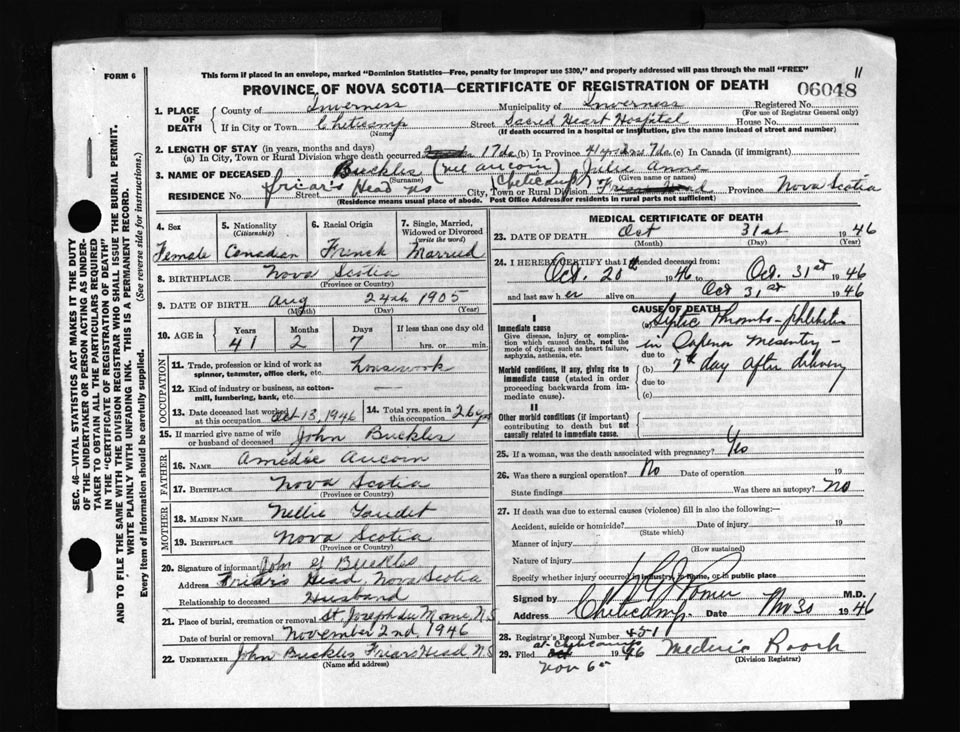 FORM 6
This form if placed in an envelope, marked "Dominion Statistics—Free, penalty for improper use $300," and properly addressed will pass through the mail "FREE"
11
PROVINCE OF NOVA SCOTIA—CERTIFICATE OF REGISTRATION OF DEATH
06048
1. PLACE OF DEATH
County of Inverness Municipality of Inverness Registered No.
(For use of Registrar General only)
If in City or Town Cheticamp Street Sacred Heart Hospital House No.
(Name) (If death occurred in a hospital or institution, give the name instead of street and number)
2. LENGTH OF STAY (in years, months and days)
(a) In City, Town or Rural Division where death occurred 17 da (b) In Province 41 yrs 2 ms 7 da (c) In Canada (if immigrant)
3. NAME OF DECEASED Buckles (nee Aucoin) Julie Anne
(Surname) (Given name or names)
RESIDENCE No. Friar's Head NS Street City, Town or Rural Division Cheticamp Province Nova Scotia
(Residence means usual place of abode. Post Office Address for residents in rural parts not sufficient)
SEC. 46—VITAL STATISTICS ACT MAKES IT THE DUTY
OF THE UNDERTAKER OR PERSON ACTING AS UNDER-
TAKER TO OBTAIN ALL THE PARTICULARS REQUIRED
IN THE "CERTIFICATE OF REGISTRATION OF DEATH"
AND TO FILE THE SAME WITH THE DIVISION REGISTRAR WHO SHALL ISSUE THE BURIAL PERMIT.
WRITE PLAINLY WITH UNFADING INK. THIS IS A PERMANENT RECORD.
Every item of information should be carefully supplied. (See reverse side for instructions.)
4. Sex
Female
5. Nationality
(Citizenship)
Canadian
6. Racial Origin
French
7. Single, Married, Widowed or Divorced
(write the word)
Married
8. BIRTHPLACE Nova Scotia
(Province or Country)
9. DATE OF BIRTH Aug 24th 1905
(Month) (Day) (Year)
10. AGE in
Years Months Days If less than one day old
41 2 7 hrs. or min.
OCCUPATION
11. Trade, profession or kind of work as
spinner, teamster, office clerk, etc. housework
12. Kind of industry or business, as cotton-
mill, lumbering, bank, etc. —
13. Date deceased last worked at this occupation Oct 13, 1946
14. Total yrs. spent in this occupation 26 yrs
15. If married give name of wife or husband of deceased John Buckles
FATHER
16. NAME Amedie Aucoin
17. BIRTHPLACE Nova Scotia
(Province or Country)
MOTHER
18. MAIDEN NAME Nellie Gaudet
19. BIRTHPLACE Nova Scotia
(Province or Country)
20. Signature of informant John G Buckles
Address Friar's Head, Nova Scotia
Relationship to deceased Husband
21. Place of burial, cremation or removal St. Joseph du Moine N.S
Date of burial or removal November 2nd, 1946
22. UNDERTAKER John Buckles Friars Head N.S
(Name and address)
MEDICAL CERTIFICATE OF DEATH
23. DATE OF DEATH Oct 31st 1946
(Month) (Day) (Year)
24. I HEREBY CERTIFY that I attended deceased from:
Oct. 20th 1946 to Oct. 31st 1946
and last saw her alive on Oct 31st 1946
CAUSE OF DEATH
I
Immediate cause
Give disease, injury or complication which caused death, not the mode of dying, such as heart failure, asphyxia, asthenia, etc.
(a) Septic Thrombo-phlebitis
in Mesentery -
due to
Morbid conditions, if any, giving rise to immediate cause (stated in order proceeding backwards from immediate cause).
(b) 7th day after delivery
due to
(c)
II
Other morbid conditions (if important) contributing to death but not causally related to immediate cause.
25. If a woman, was the death associated with pregnancy? Yes
26. Was there a surgical operation? No Date of operation 19
State findings Was there an autopsy? No
27. If death was due to external causes (violence) fill in also the following:—
Accident, suicide or homicide? Date of injury 19
(State which)
Manner of injury
(How sustained)
Nature of injury
Specify whether injury occurred in industry, in home, or in public place
Signed by M.D.
Address Cheticamp Date Nov 30 1946
28. Registrar's Record Number 451
at Cheticamp
29. Filed Nov 6th 1946 Mederic Roach
(Division Registrar)